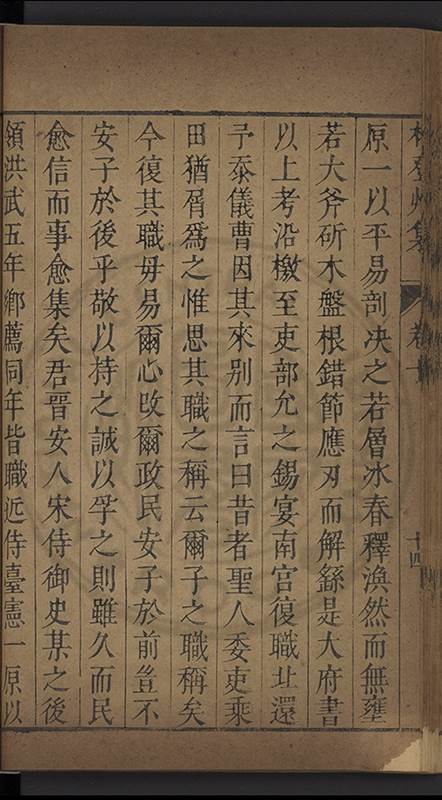 林登州集 卷十 十四
原一以平易剖决之若層冰春釋渙然而無壅
若大斧斫木盤根錯節應刃而解繇是大府書
以上考沿檄至吏部允之錫宴南宫復職㘴還
予忝儀曹因其來别而言曰昔者聖人委吏乗
田猶屑爲之惟思其職之稱云爾子之職稱矣
今復其職毋易爾心改爾政民安子於前豈不
安子於後乎敬以持之誠以孚之則雖久而民
愈信而事愈集矣君晋安人宋侍御史某之後
領洪武五年鄉薦同年皆職近侍臺憲一原以